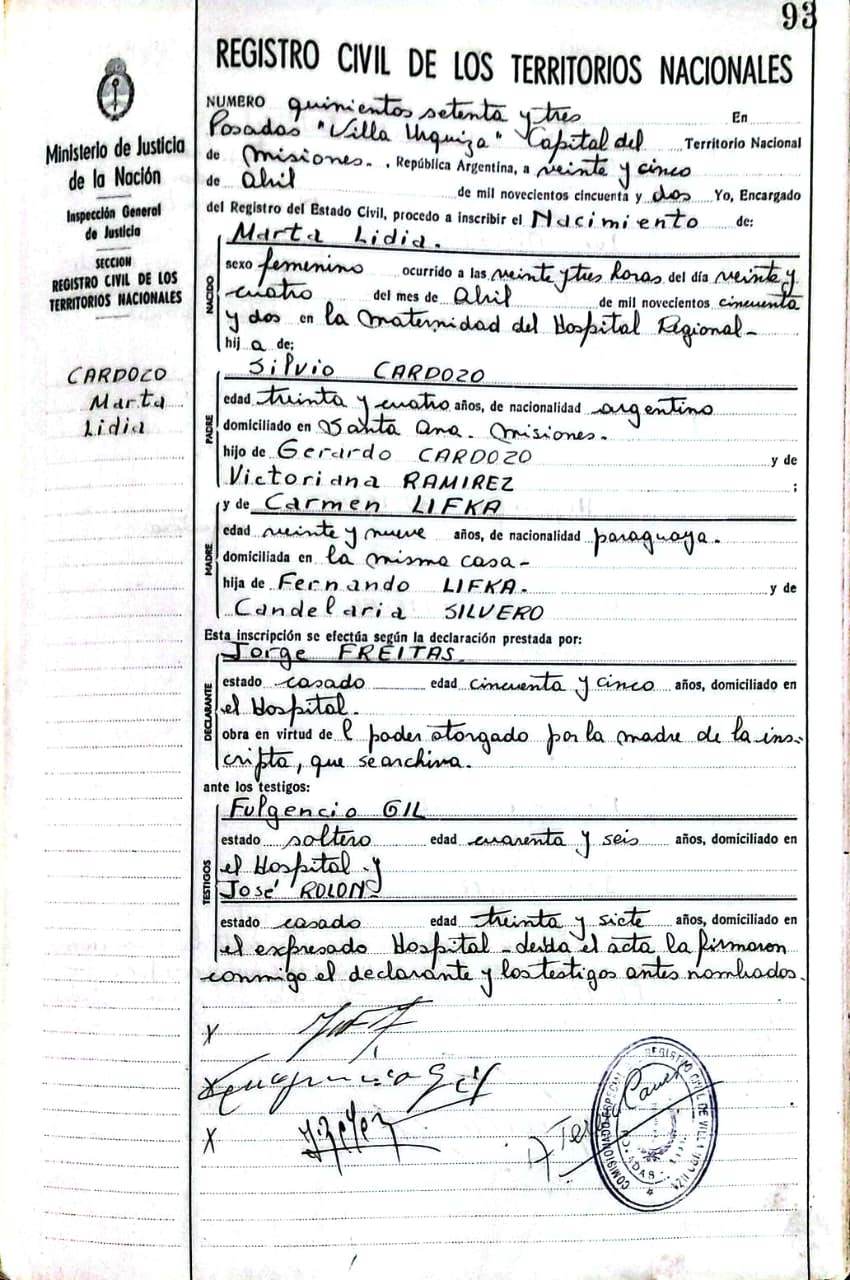 93
REGISTRO CIVIL DE LOS TERRITORIOS NACIONALES
Ministerio de Justicia
de la Nación
Inspección General
de Justicia
SECCION
REGISTRO CIVIL DE LOS
TERRITORIOS NACIONALES
CARDOZO
Marta
Lidia
NUMERO quinientos setenta y tres En
Posadas "Villa Urquiza" Capital del Territorio Nacional
de Misiones.-, República Argentina, a veinte y cinco
de Abril de mil novecientos cincuenta y dos Yo, Encargado
del Registro del Estado Civil, procedo a inscribir el Nacimiento de:
NACIDO
Marta Lidia.
sexo femenino ocurrido a las veinte y tres horas del día veinte y
cuatro del mes de Abril de mil novecientos cincuenta
y dos en la Maternidad del Hospital Regional-
hija de:
PADRE
Silvio CARDOZO
edad treinta y cuatro años, de nacionalidad argentino
domiciliado en Santa Ana. Misiones.
hijo de Gerardo CARDOZO y de
Victoriana RAMIREZ ;
MADRE
y de Carmen LIFKA
edad veinte y nueve años, de nacionalidad paraguaya.
domiciliada en la misma casa-
hija de Fernando LIFKA. y de
Candelaria SILVERO
Esta inscripción se efectúa según la declaración prestada por:
DECLARANTE
Jorge FREITAS
estado casado edad cincuenta y cinco años, domiciliado en
el Hospital.
obra en virtud del poder otorgado por la madre de la ins-
cripta, que se archiva.
ante los testigos:
TESTIGOS
Fulgencio GIL
estado soltero edad cuarenta y seis años, domiciliado en
el Hospital y
José ROLON
estado casado edad treinta y siete años, domiciliado en
el expresado Hospital - leida el acta la firmaron
conmigo el declarante y los testigos antes nombrados.
X
X
X
COMISIONADO ESPECIAL REGISTRO CIVIL DE VILLA URQUIZA